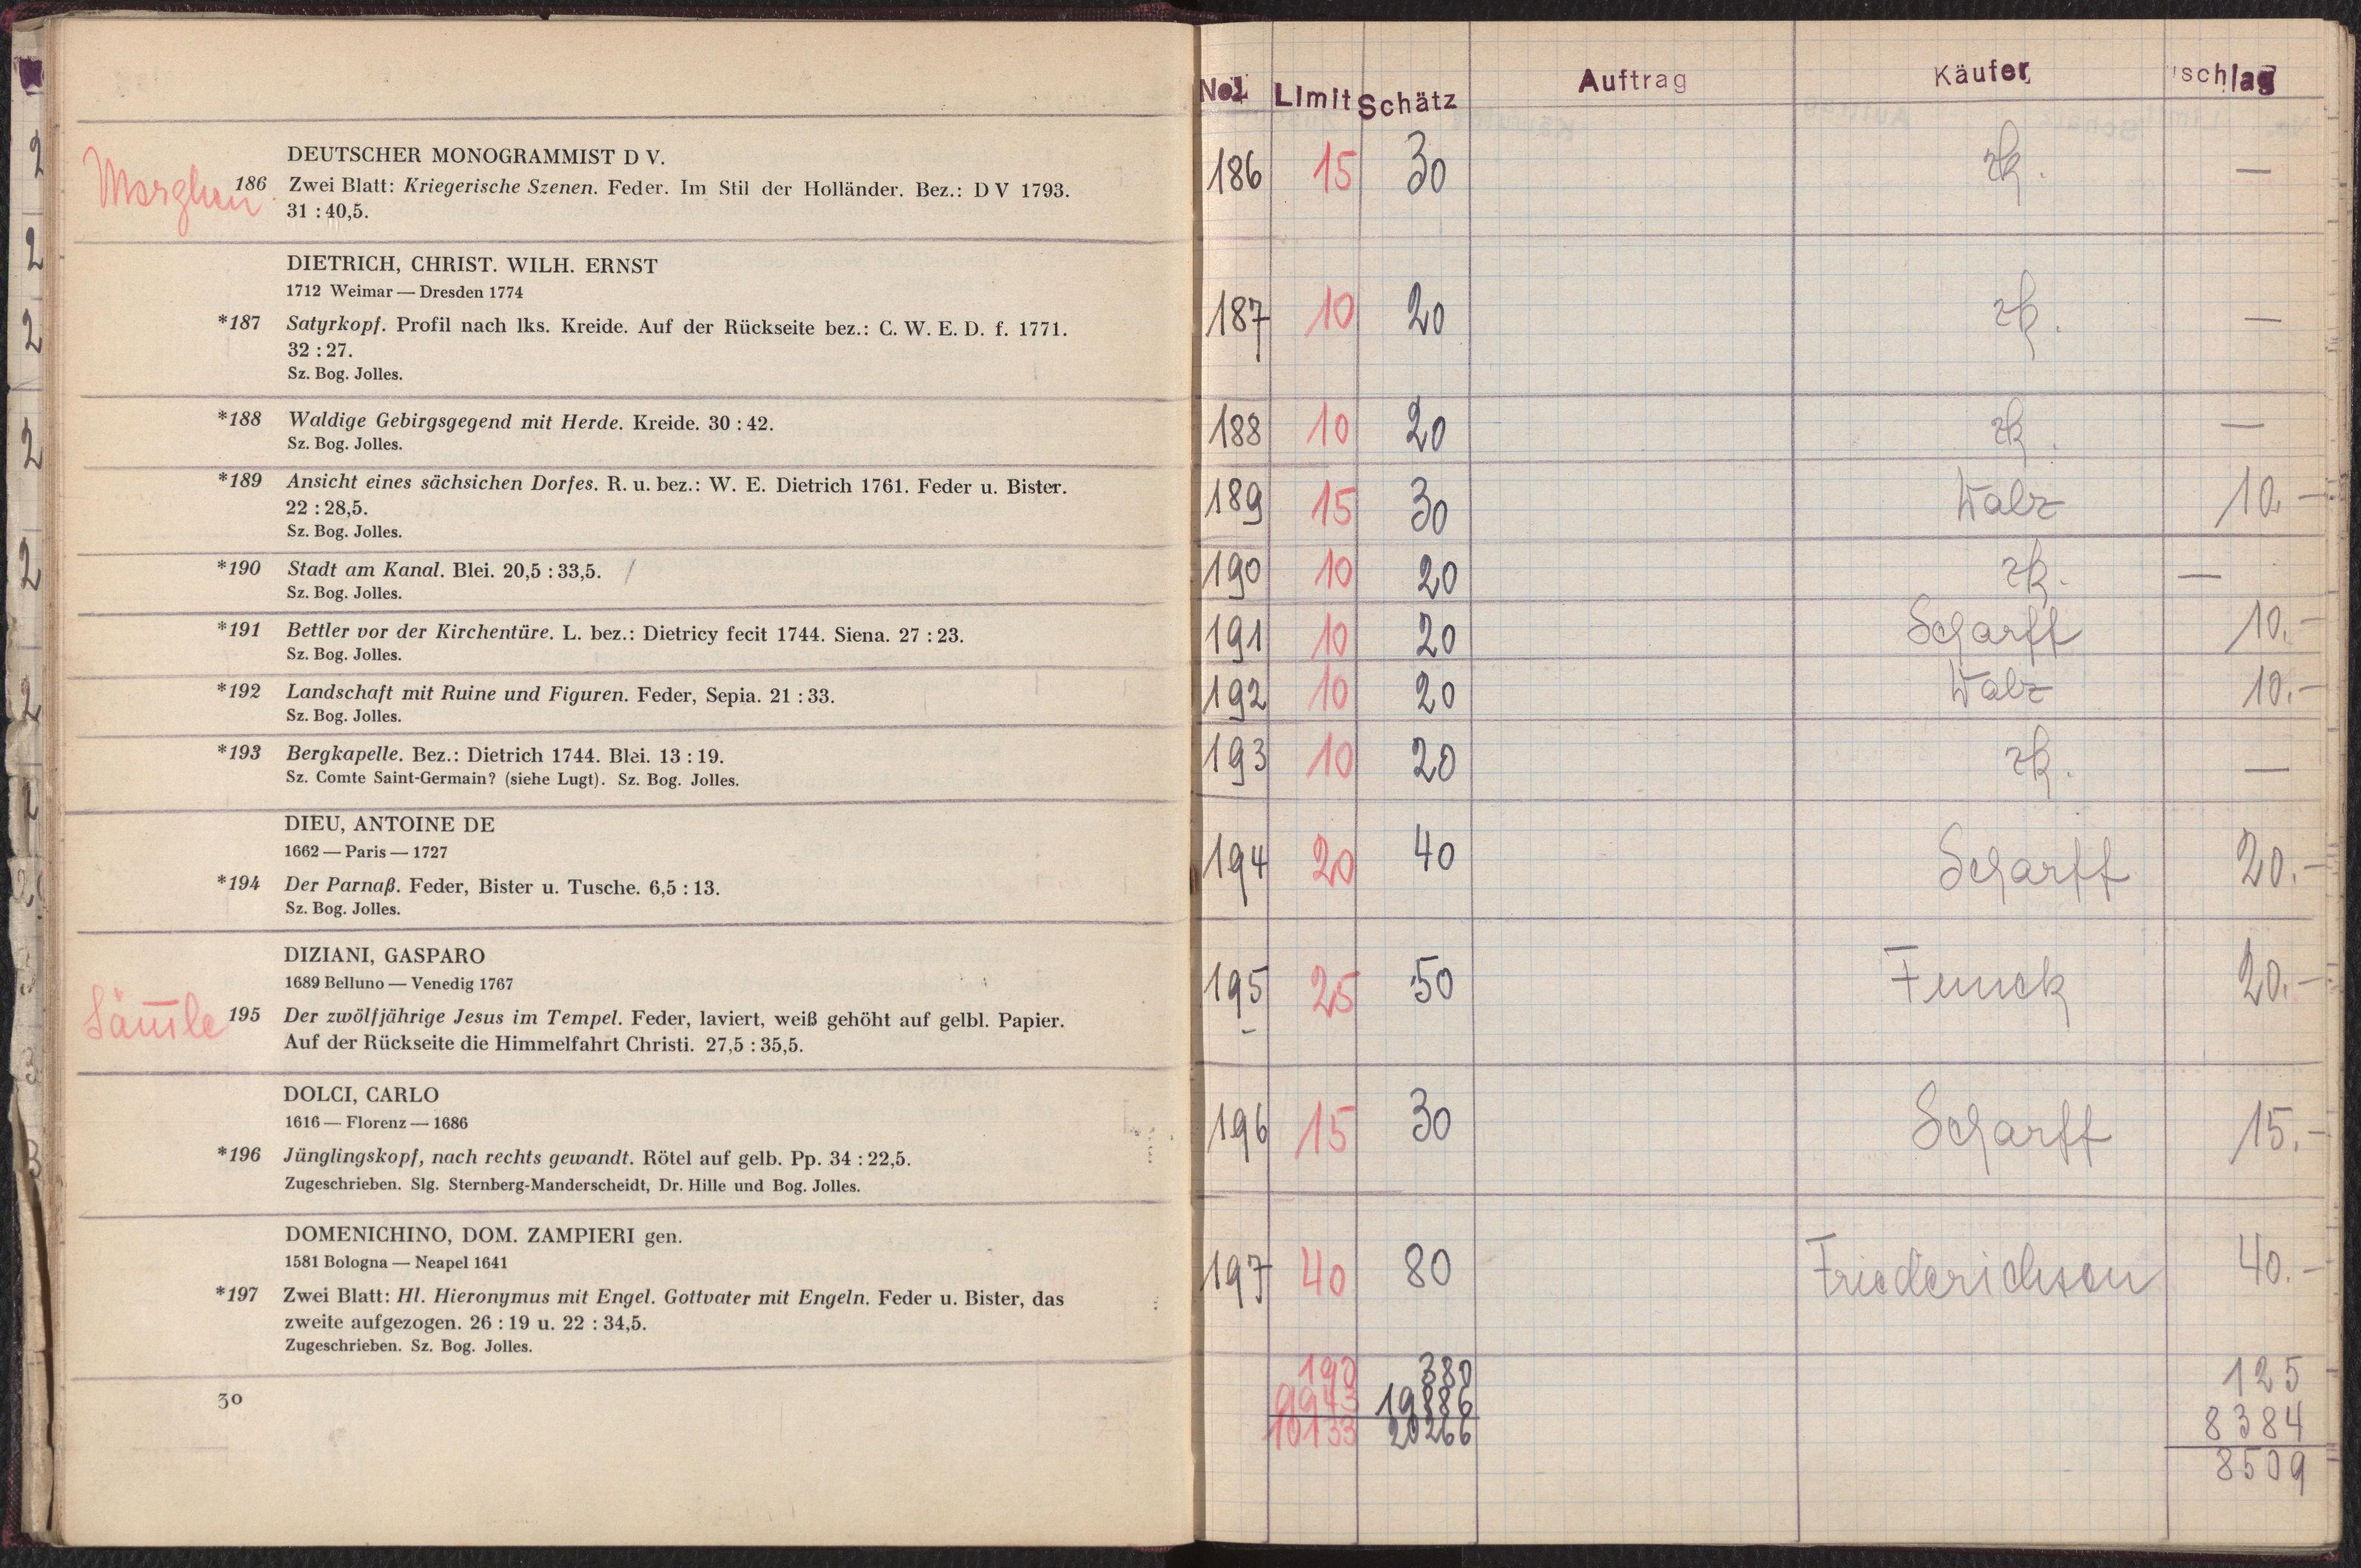 DEUTSCHER MONOGRAMMIST D V.
186 Zwei Blatt: Kriegerische Szenen. Feder. Im Stil der Holländer. Bez.: D V 1793.
31 : 40,5.
DIETRICH, CHRIST. WILH. ERNST
1712 Weimar — Dresden 1774
*187 Satyrkopf. Profil nach lks. Kreide. Auf der Rückseite bez.: C. W. E. D. f. 1771.
32 : 27.
Sz. Bog. Jolles.
*188 Waldige Gebirgsgegend mit Herde. Kreide. 30 : 42.
Sz. Bog. Jolles.
*189 Ansicht eines sächsichen Dorfes. R. u. bez.: W. E. Dietrich 1761. Feder u. Bister.
22 : 28,5.
Sz. Bog. Jolles.
*190 Stadt am Kanal. Blei. 20,5 : 33,5.
Sz. Bog. Jolles.
*191 Bettler vor der Kirchentüre. L. bez.: Dietricy fecit 1744. Siena. 27 : 23.
Sz. Bog. Jolles.
*192 Landschaft mit Ruine und Figuren. Feder, Sepia. 21 : 33.
Sz. Bog. Jolles.
*193 Bergkapelle. Bez.: Dietrich 1744. Blei. 13 : 19.
Sz. Comte Saint-Germain? (siehe Lugt). Sz. Bog. Jolles.
DIEU, ANTOINE DE
1662 — Paris — 1727
*194 Der Parnaß. Feder, Bister u. Tusche. 6,5 : 13.
Sz. Bog. Jolles.
DIZIANI, GASPARO
1689 Belluno — Venedig 1767
195 Der zwölfjährige Jesus im Tempel. Feder, laviert, weiß gehöht auf gelbl. Papier.
Auf der Rückseite die Himmelfahrt Christi. 27,5 : 35,5.
DOLCI, CARLO
1616 — Florenz — 1686
*196 Jünglingskopf, nach rechts gewandt. Rötel auf gelb. Pp. 34 : 22,5.
Zugeschrieben. Slg. Sternberg-Manderscheidt, Dr. Hille und Bog. Jolles.
DOMENICHINO, DOM. ZAMPIERI gen.
1581 Bologna — Neapel 1641
*197 Zwei Blatt: Hl. Hieronymus mit Engel. Gottvater mit Engeln. Feder u. Bister, das
zweite aufgezogen. 26 : 19 u. 22 : 34,5.
Zugeschrieben. Sz. Bog. Jolles.
30
Limit Schätz Auftrag Käufer schlag
186 15 30 zk. —
187 10 20 zk. —
188 10 20 zk. —
189 15 30 Walz 10.—
190 10 20 zk. —
191 10 20 Scharff 10.—
192 10 20 Walz 10.—
193 10 20 zk. —
194 20 40 Scharff 20.—
195 25 50 Funck 20.—
196 15 30 Scharff 15.—
197 40 80 Friederichsen 40.—
190 380 125
9943 19886 8384
10133 20266 8509